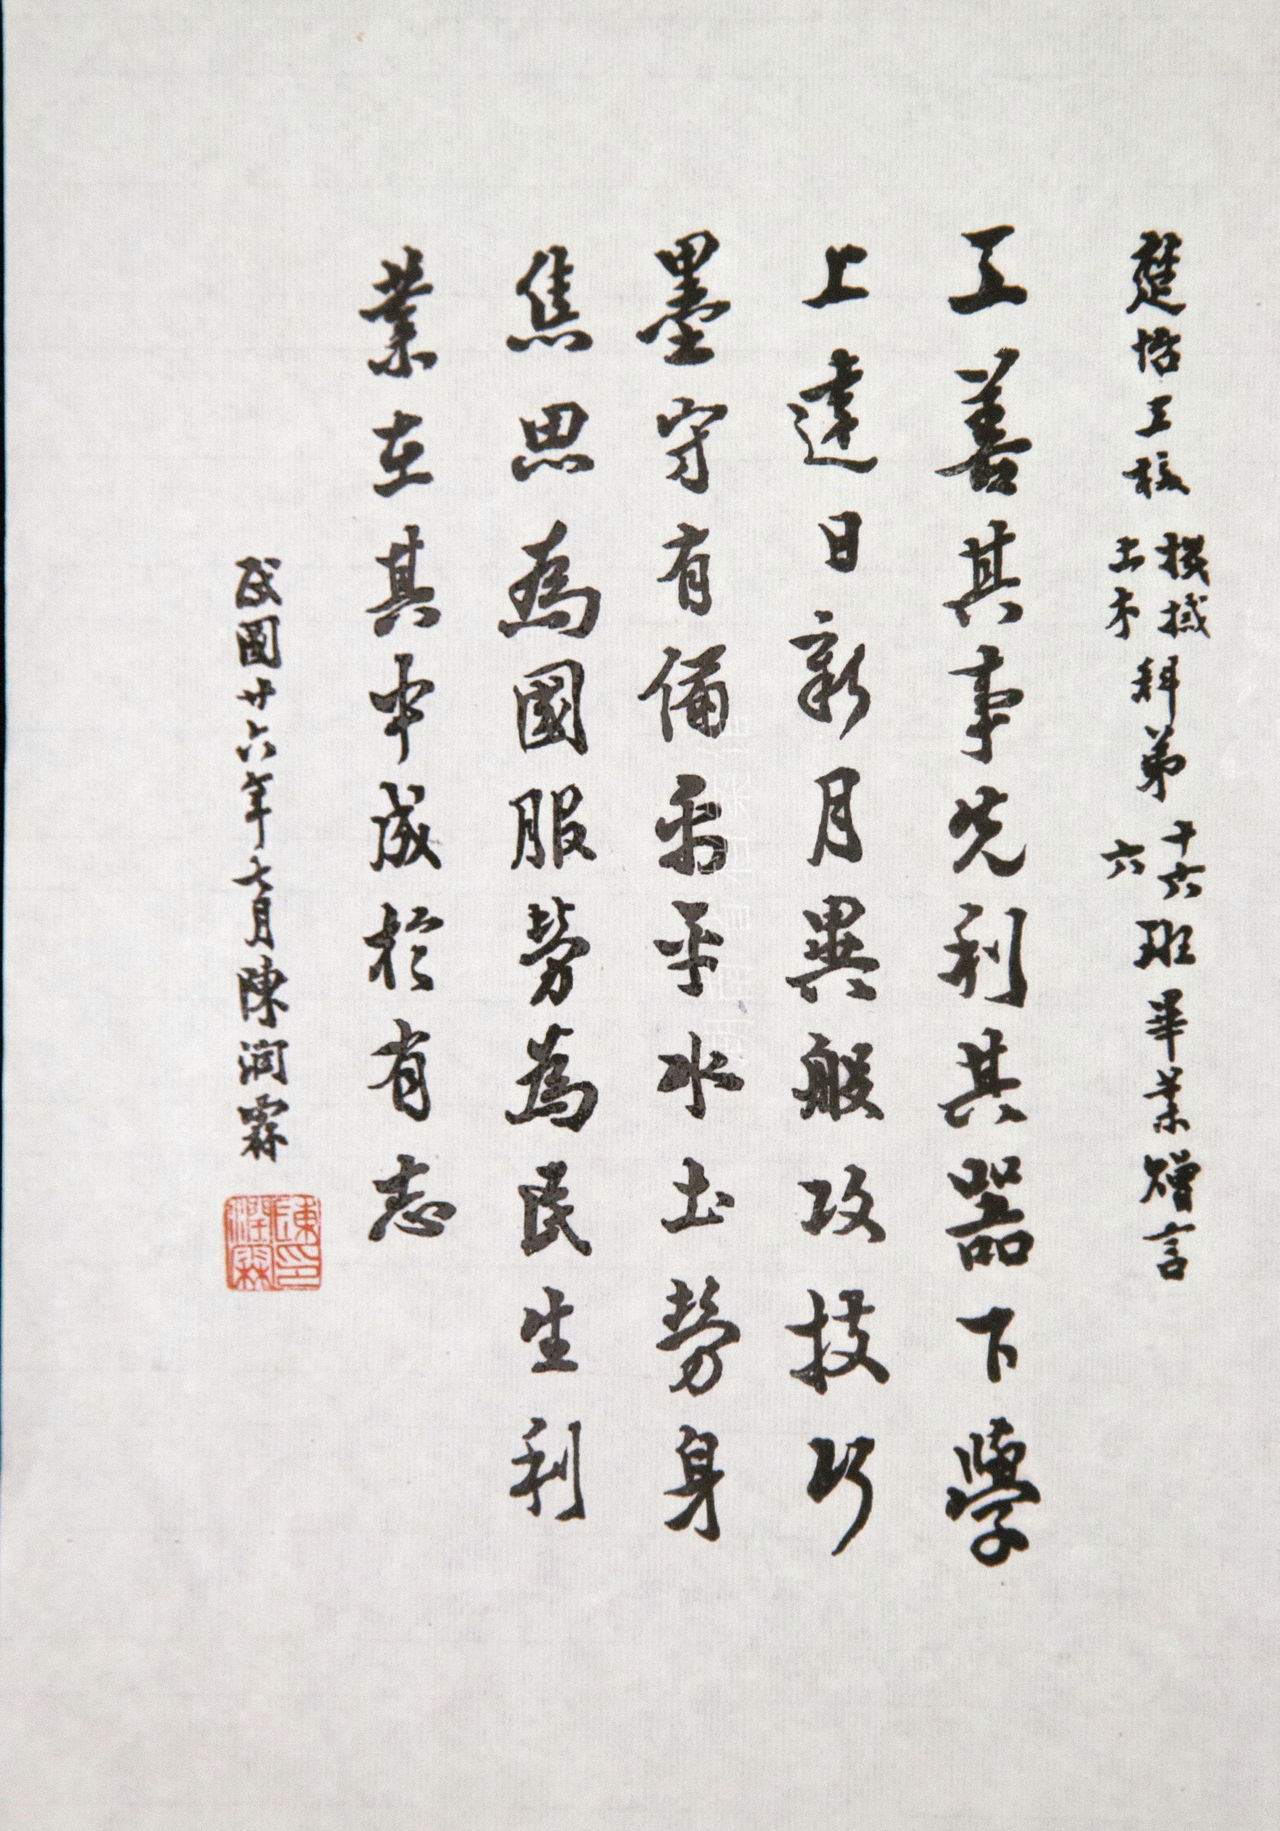 楚怡工校機械土木科第十六六班畢業贈言
工善其事先利其器下學
上達日新月異般攻技巧
墨守有備禹平水土勞身
焦思為國服勞為民生利
業在其中成於有志
民國廿六年七月陳潤霖
陳潤霖印